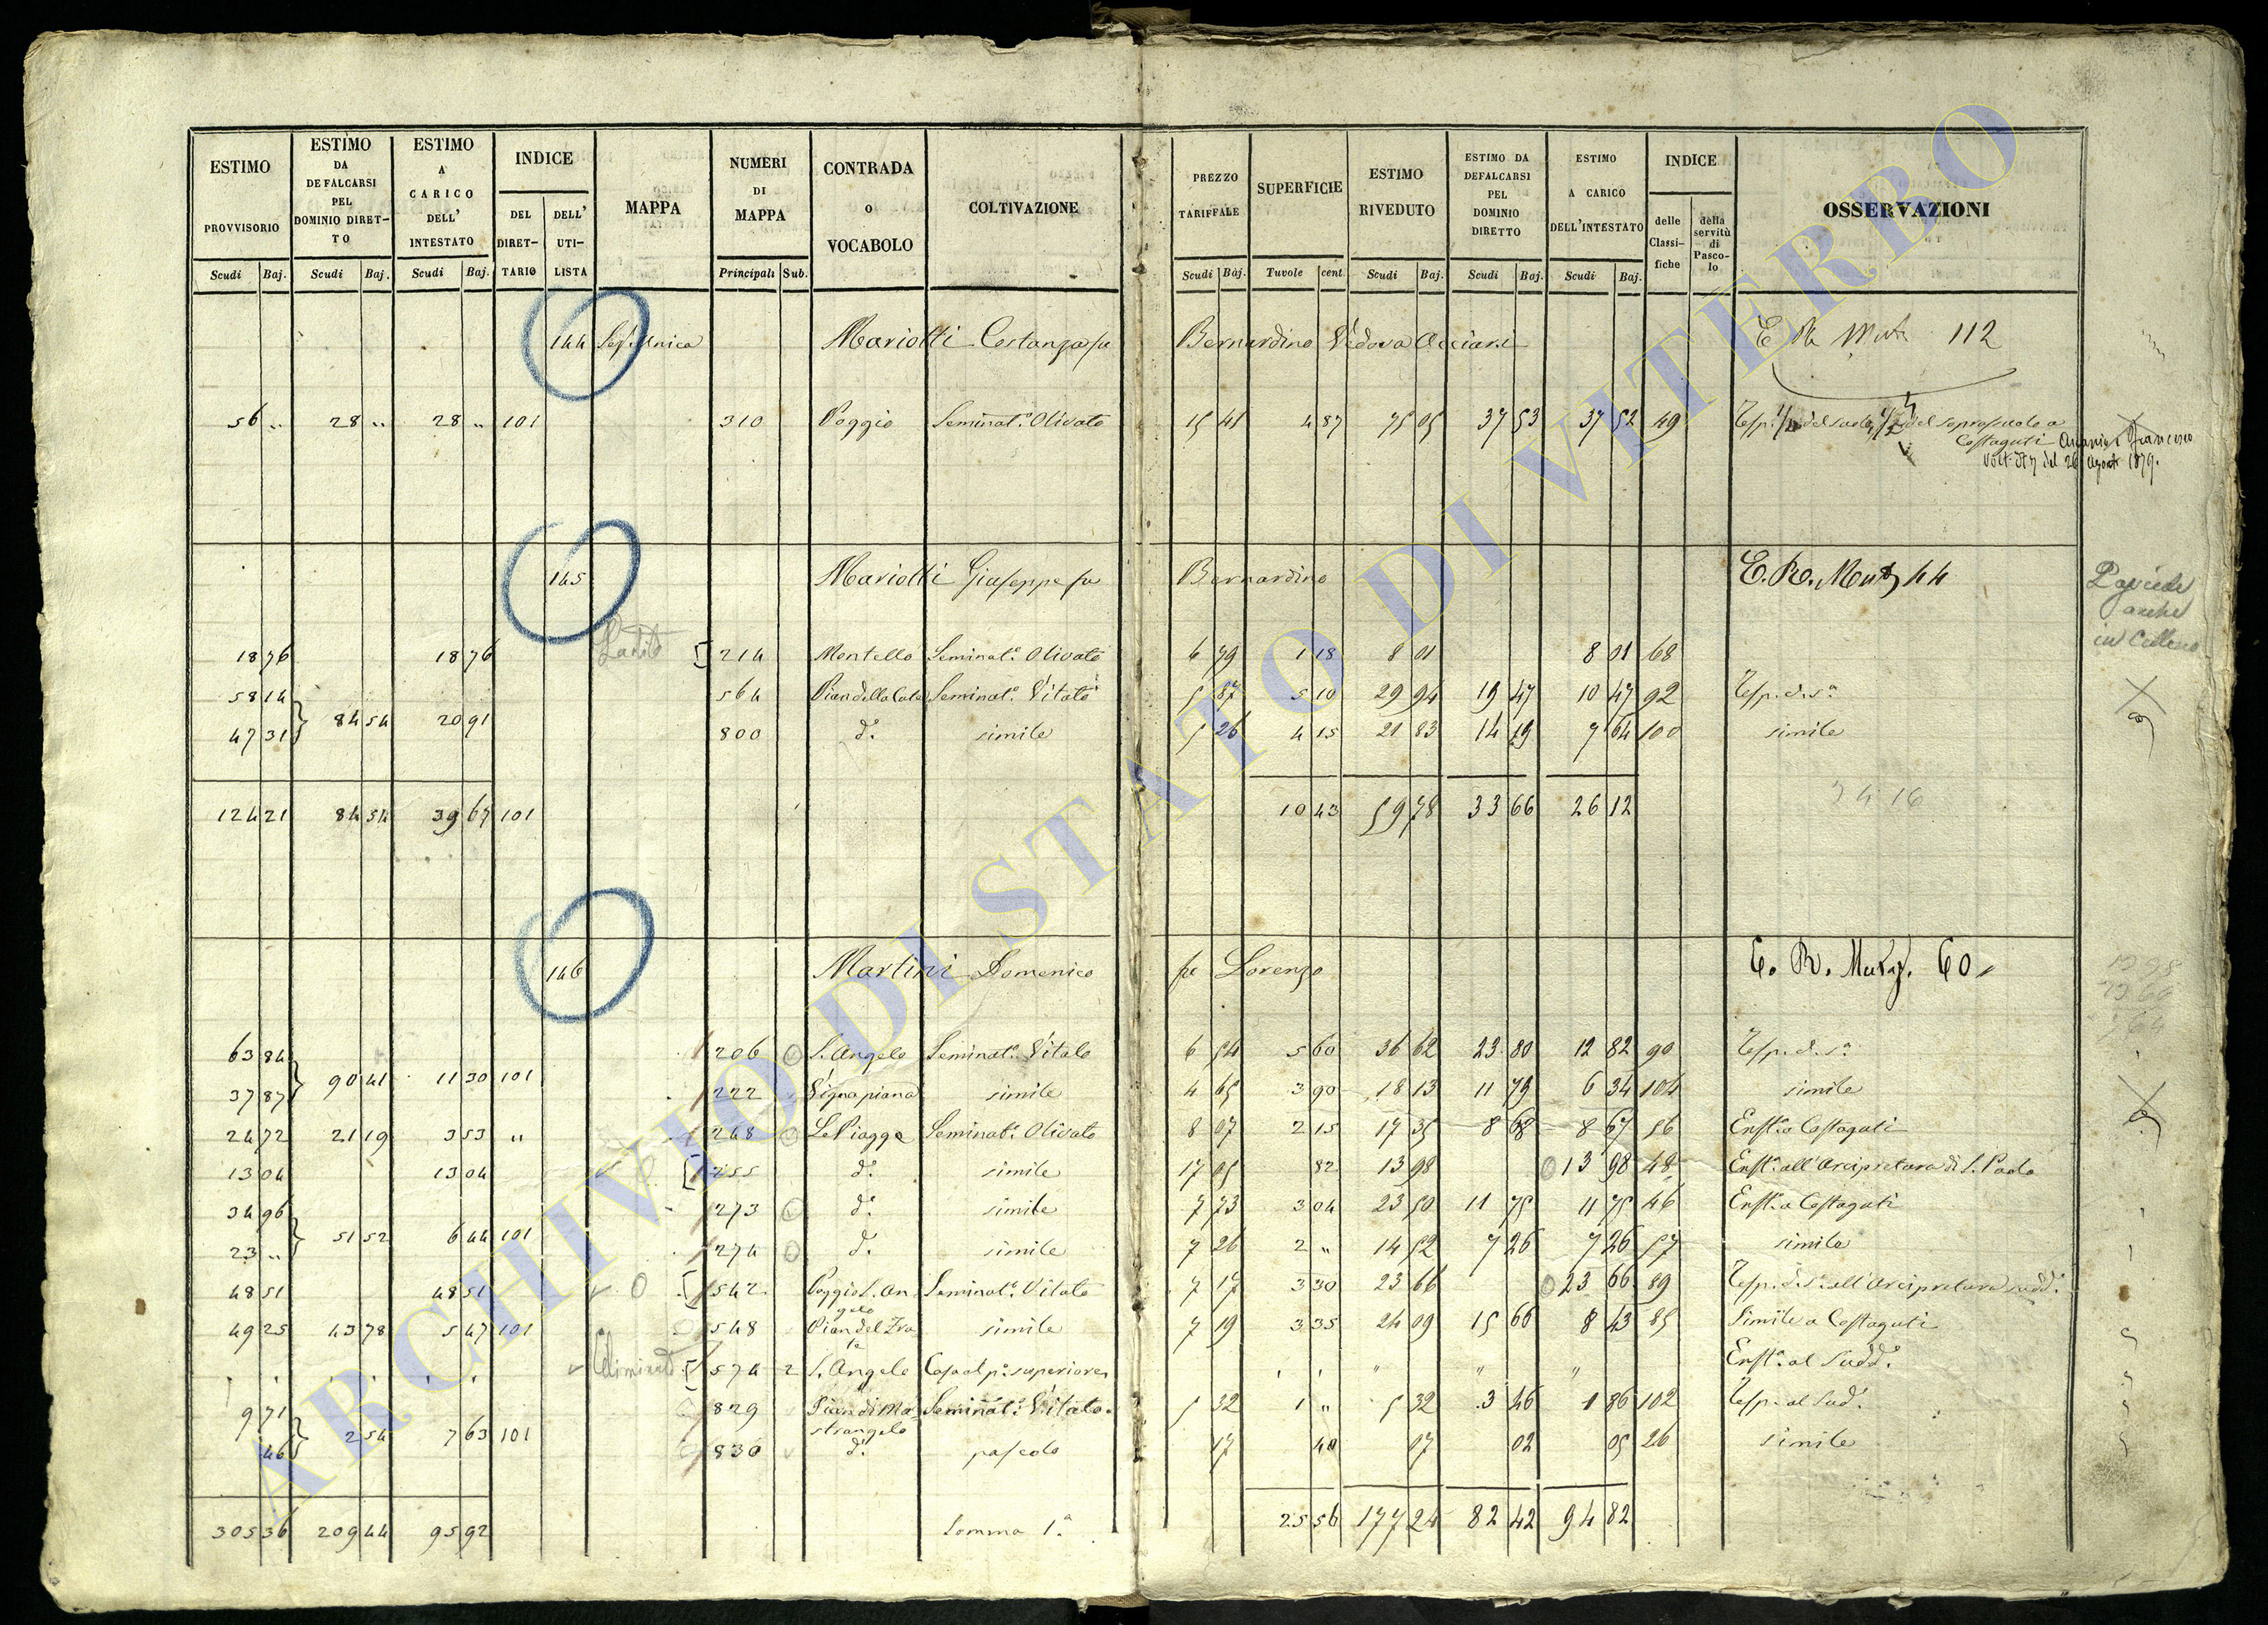 ESTIMO PROVVISORIO Scudi Baj.
ESTIMO DA DEFALCARSI PEL DOMINIO DIRET-TO Scudi Baj.
ESTIMO A CARICO DELL' INTESTATO Scudi Baj.
INDICE DEL DIRET-TARIO DELL' UTI-LISTA
MAPPA
NUMERI DI MAPPA Principali Sub.
CONTRADA o VOCABOLO
COLTIVAZIONE
PREZZO TARIFFALE Scudi Baj.
SUPERFICIE Tavole cent.
ESTIMO RIVEDUTO Scudi Baj.
ESTIMO DA DEFALCARSI PEL DOMINIO DIRETTO Scudi Baj.
ESTIMO A CARICO DELL'INTESTATO Scudi Baj.
INDICE delle Classi-fiche della servitù di Pasco-lo
OSSERVAZIONI
144 Sez. Unica Mariotti Costanza fu Bernardino Vedova Acciari 112
56 .. 28 .. 28 .. 101 310 Poggio Seminat.o Olivato 15 41 4 87 75 05 37 53 37 52 49 del suolo del soprasuolo a
Costaguti Francesco
del 26 Agosto 1879.
145 Mariotti Giuseppe fu Bernardino E. R. Mut. 44
Possiede
anche
in Celleno
18 76 18 76 214 Montello Seminat.o Olivato 6 79 1 18 8 01 8 01 68
58 14 564 Seminat.o Vitato 5 87 5 10 29 94 19 47 10 47 92 Resp. d. s.a
84 54 20 91
47 31 800 d.o simile 5 26 4 15 21 83 14 19 7 64 100 simile
124 21 84 54 39 67 101 10 43 59 78 33 66 26 12
146 Martini Domenico fu Lorenzo E. R. Mut. 60
63 84 206 S. Angelo Seminat.o Vitato 6 54 5 60 36 62 23 80 12 82 90 Resp. d. s.a
90 41 11 30 101
37 87 222 Vigna piana simile 4 65 3 90 18 13 11 79 6 34 104 simile
24 72 21 19 3 53 " 248 Le Piagge Seminat.o Olivato 8 07 2 15 17 35 8 68 8 67 56 Enft.a Costaguti
13 04 13 04 255 d.o simile 17 05 82 13 98 13 98 48 Enft.a all'Arcipretura di S. Paolo
34 96 273 d.o simile 7 73 3 04 23 50 11 75 11 75 46 Enft.a a Costaguti
51 52 6 44 101
23 .. 274 d.o simile 7 26 2 " 14 52 7 26 7 26 57 simile
48 51 48 51 542 Poggio S. Angelo Seminat.o Vitato 7 17 3 30 23 66 23 66 89 Resp. d. s.a all'Arcipretura sudd.a
49 25 43 78 5 47 101 548 simile 7 19 3 35 24 09 15 66 8 43 85 Simile a Costaguti
574 2 S. Angelo Casa al p.o superiore " " " Enft.a al Sudd.o
9 71 829 Pian di Mastrangelo Seminat.o Vitato 5 32 1 " 5 32 3 46 1 86 102 Resp. al Sud.o
2 54 7 63 101
46 830 d.o pascolo 17 40 07 02 05 26 simile
305 36 209 44 95 92 Somma 1.a 25 56 177 24 82 42 94 82
ARCHIVIO DI STATO DI VITERBO